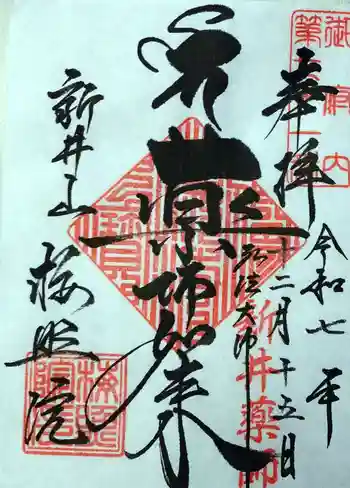 御府内
第七十一番
奉拝
令和七年
十二月十五日
新井薬師
弘法大師
薬師如来
新井山
梅照院